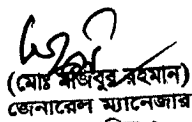 (মোঃ মজিবুর রহমান)
জেনারেল ম্যানেজার